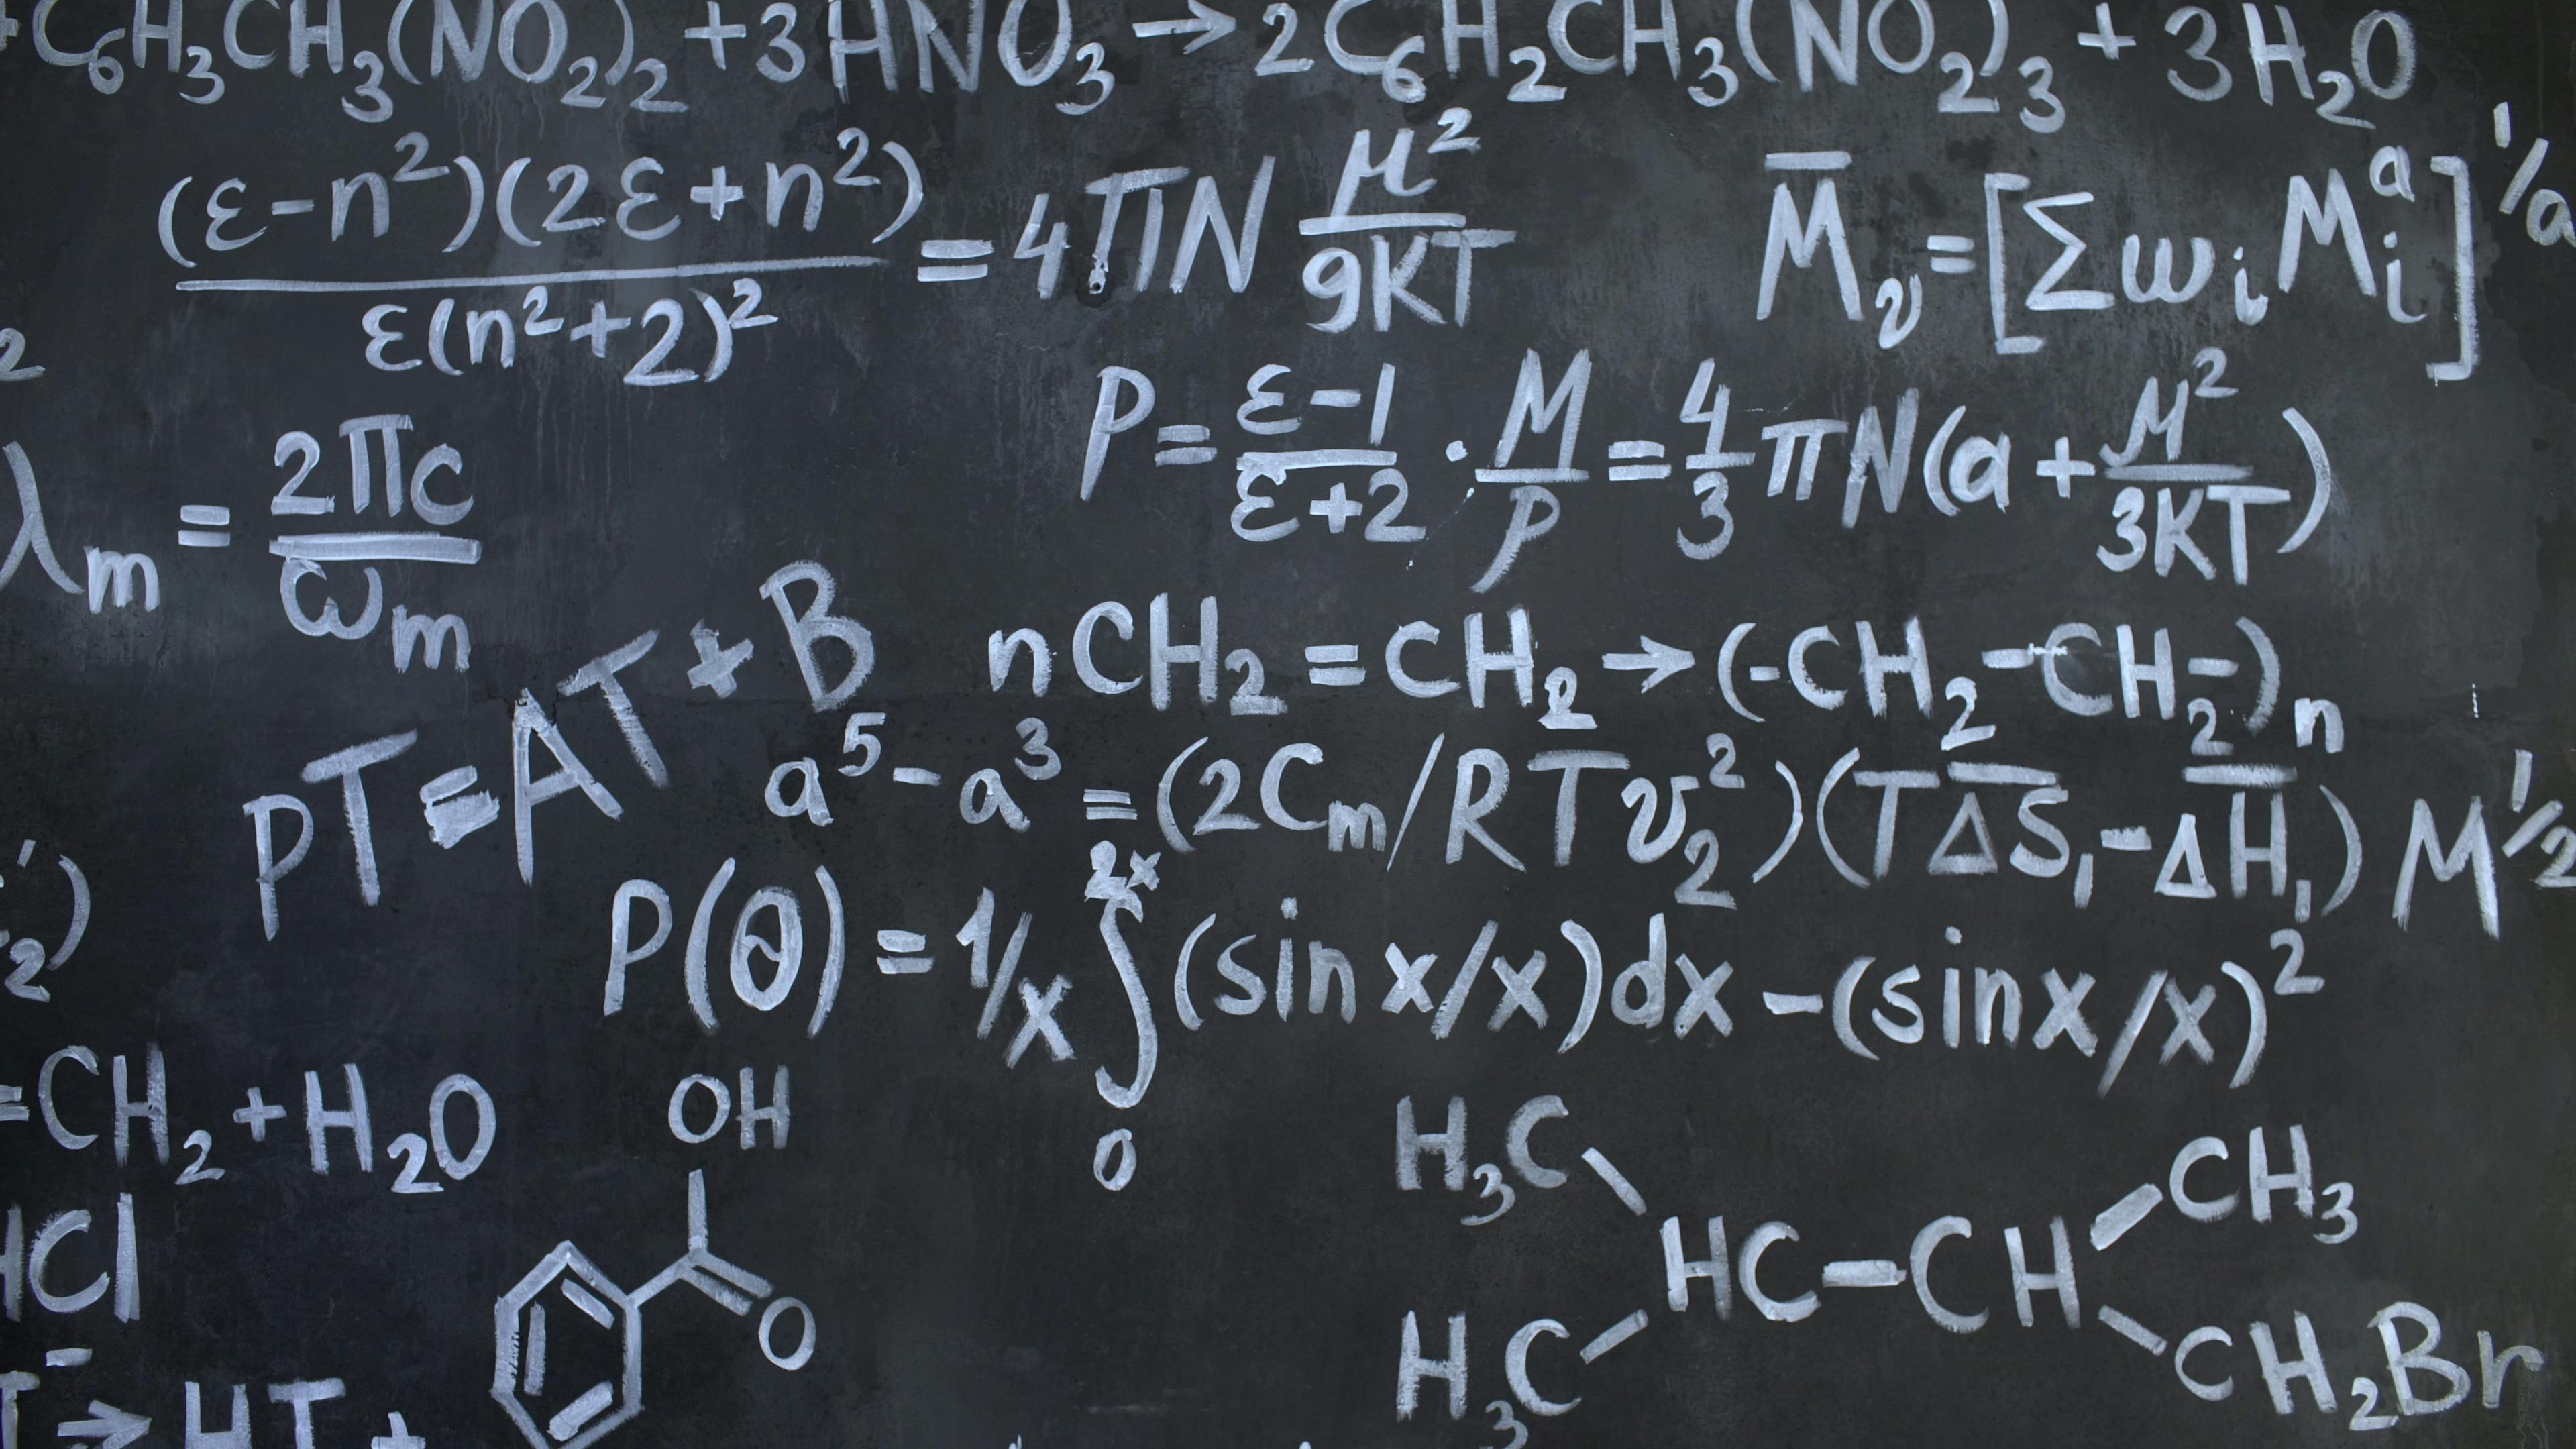 +C₆H₃CH₃(NO₂)₂ +3HNO₃→2C₆H₂CH₃(NO₂)₃+3H₂O
(ε-n²)(2ε+n²)/ε(n²+2)² = 4πN μ²/9KT
M̄ᵥ=[Σωᵢ Mᵢᵃ]^1/a
2
P= ε-1/ε+2 · M/ρ = 4/3 πN(a+ μ²/3KT)
λm = 2πc/ωm
nCH₂=CH₂→(-CH₂-CH₂-)n
PT=AT+B
a⁵-a³=(2Cm/RTv₂²)(TΔS̄₁-ΔH̄₁) M^1/2
P(θ)=1/x ∫₀²ˣ (sin x/x)dx-(sinx/x)²
₂)
=CH₂+H₂O
OH
O
H₃C
CH₃
HC-CH
H₃C
CH₂Br
HCl
→HT+